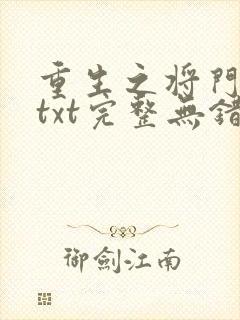 重生之将門
txt完整無錯
御劍江南